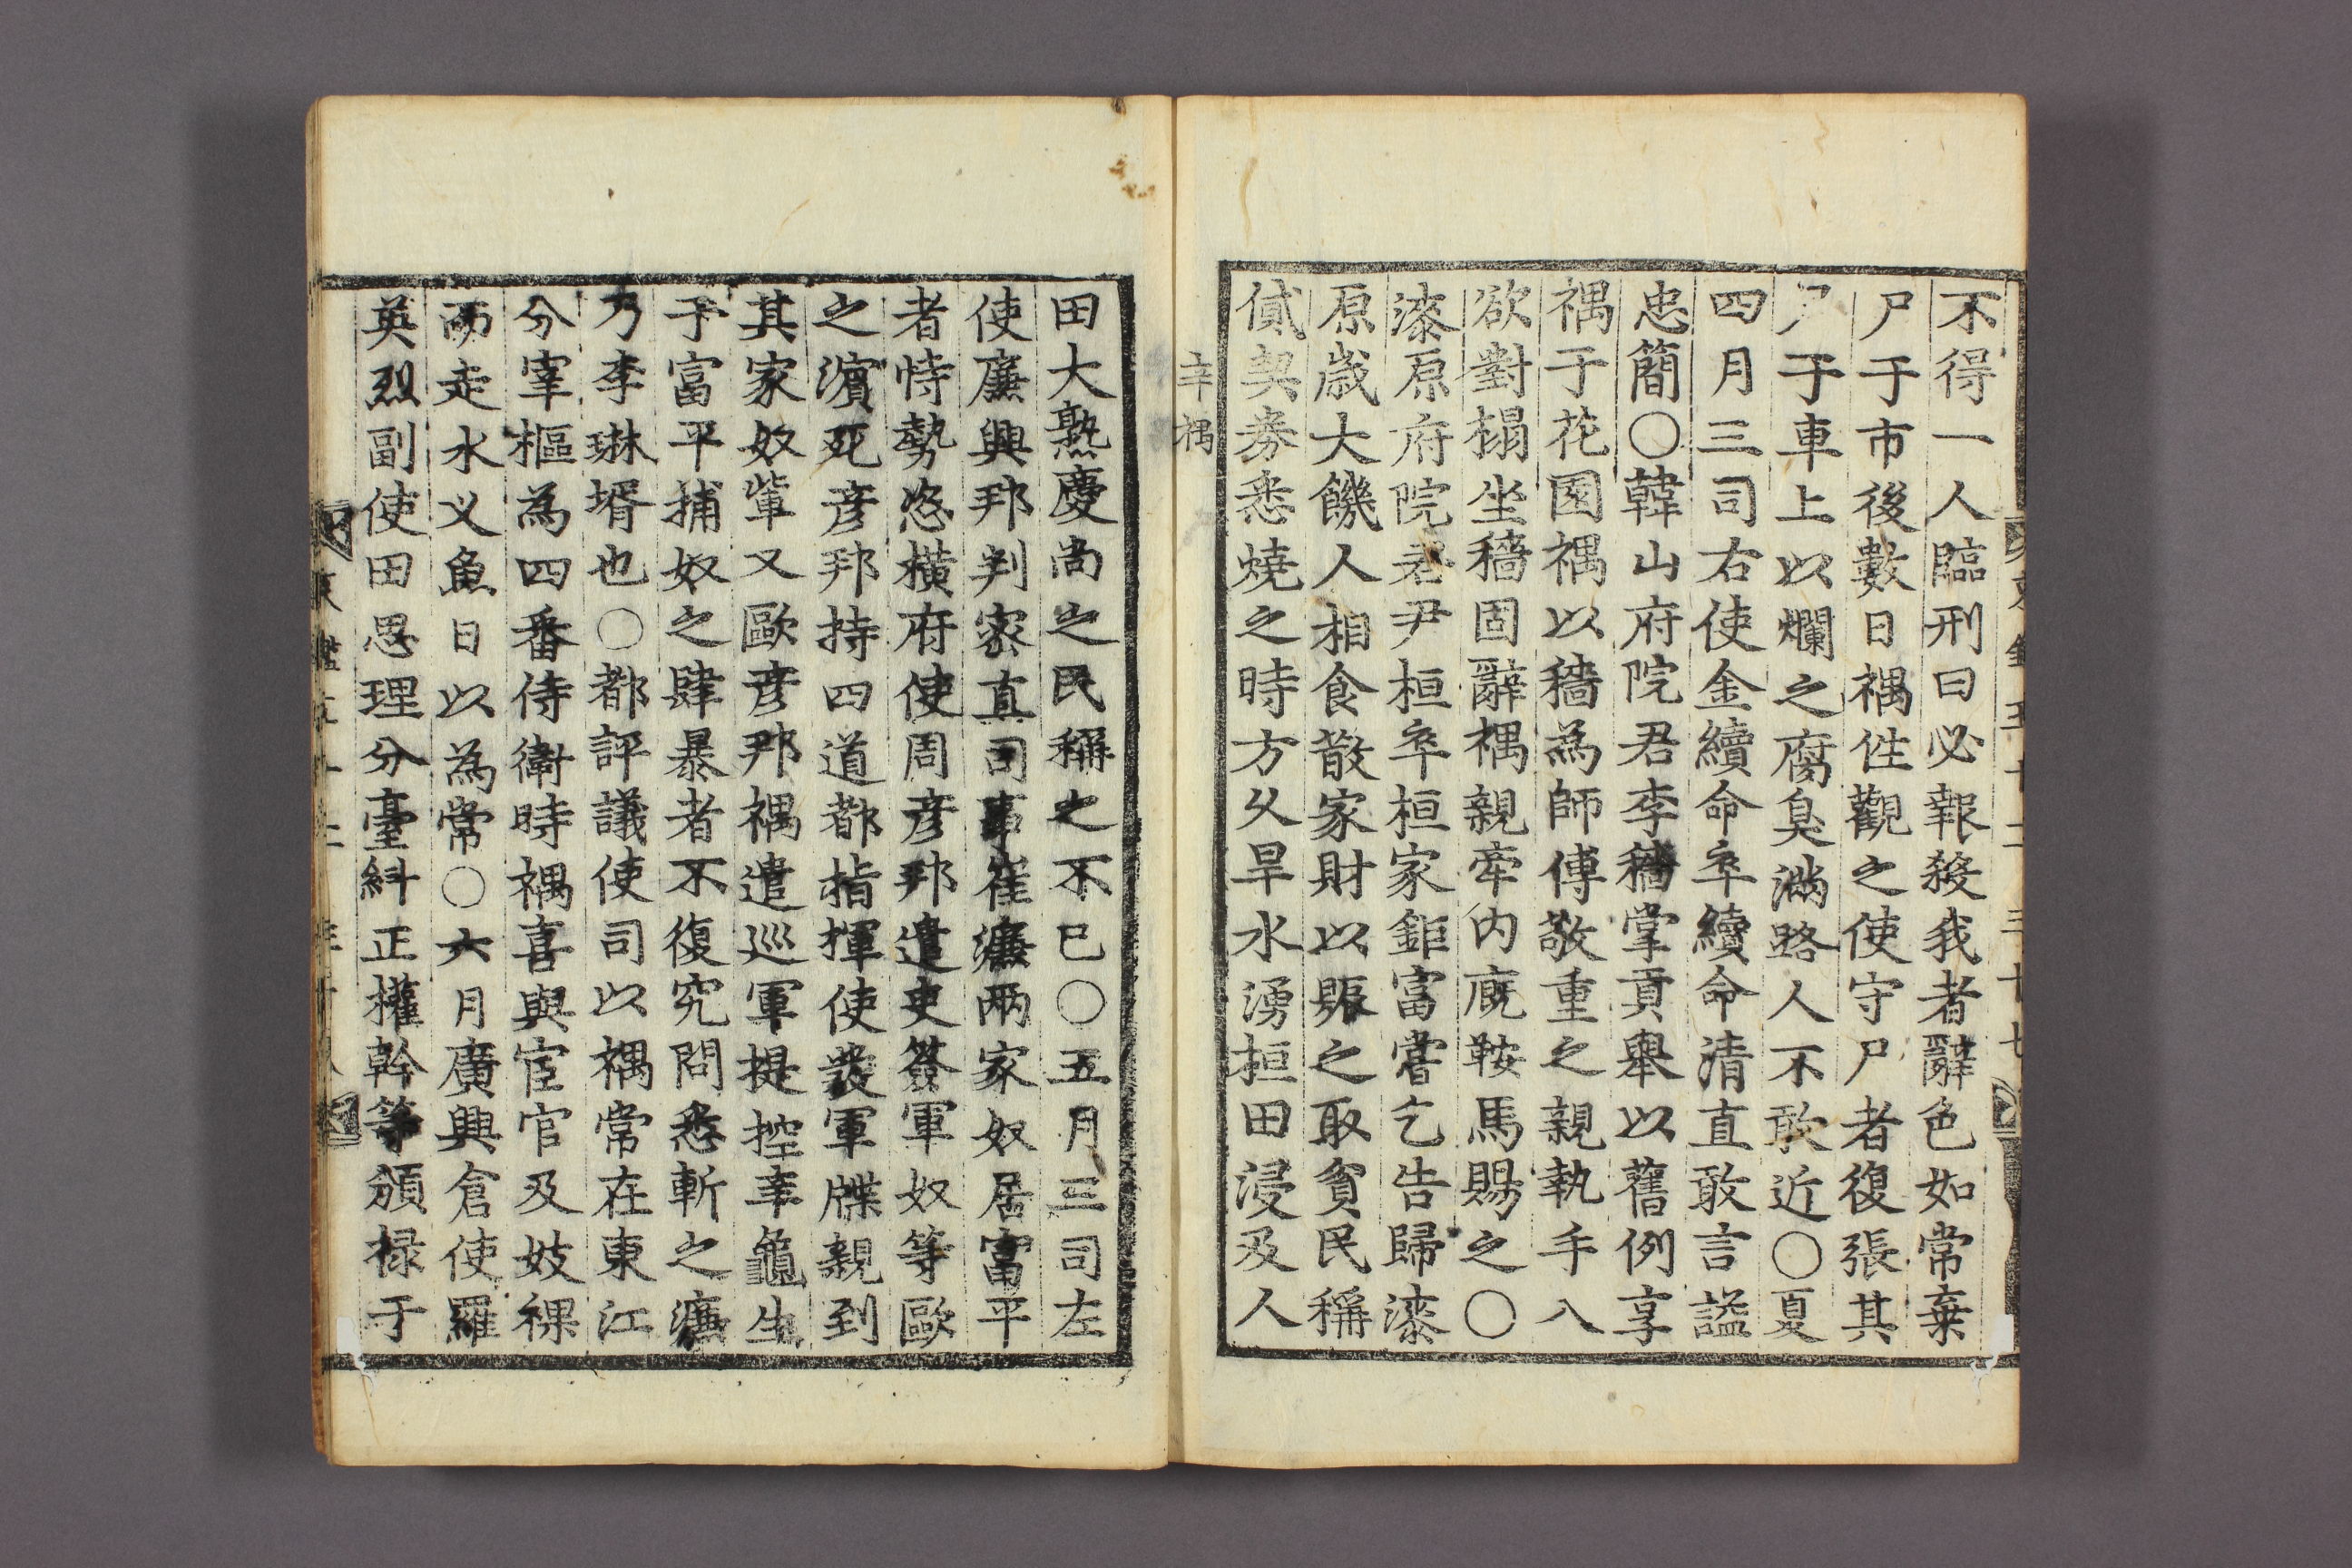 不得一人臨刑曰必報殺我者辭色如常棄
尸于市後數日禑徃觀之使守尸者復張其
尸于車上以爛之腐臭滿路人不敢近○夏
四月三司右使金續命卒續命清直敢言謚
忠簡○韓山府院君李穡掌貢舉以舊例享
禑于花園禑以穡為師傅敬重之親執手入
欲對榻坐穡固辭禑親牽内廐鞍馬賜之○
漆原府院君尹桓卒桓家鉅富嘗乞告歸漆
原歲大饑人相食散家財以賑之取貧民稱
貸契券悉燒之時方久旱水湧桓田浸及人
辛禑
田大熟慶尚之民稱之不已○五月三司左
使廉興邦判密直司事崔濂兩家奴居富平
者恃勢恣橫府使周彦邦遣吏簽軍奴等歐
之濵死彦邦持四道都指揮使發軍牒親到
其家奴軰又歐彦邦禑遣巡軍提控辛龜生
于富平捕奴之肆暴者不復究問悉斬之濂
乃李琳壻也○都評議使司以禑常在東江
分宰樞為四番侍衛時禑喜與宦官及妓祼
而走水乂魚日以為常○六月廣興倉使羅
英烈副使田思理分臺糾正權幹等頒祿于